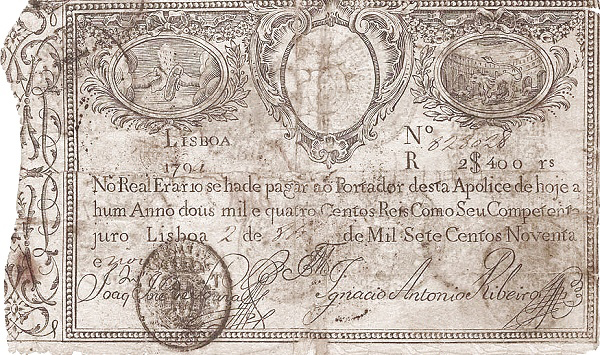 LISBOA
Nº
179
R 2$400 rs
No Real Erario se hade pagar ao Portador desta Apolice de hoje a
hum Anno dous mil e quatro Centos Reis Como Seu Competente
juro Lisboa 2 de de Mil Sete Centos Noventa
e
Ignacio Antonio Ribeiro
Joaq